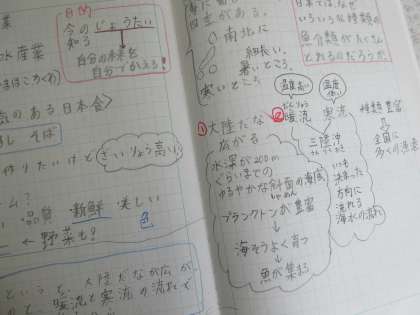 目的
今のじょうたい
知る
自分の未来を
自分でかえる!
水産業
気のある日本食>
すし そば
作りたいけど
さいりょう高い
ーム?
品質 新鮮 美しい
色
← 野菜も!
というと、大陸だなが広が
暖流と寒流の流れで
南北に
細長い
暑いところ
寒いところ
日本では、なぜ
いろいろな種類の
魚介類がたくさん
とれるのだろうか。
① 大陸だな
広がる
水深が200m
くらいまでの
ゆるやかな斜面の海底
しゃめん
プランクトンが豊富
↓
海そうよく育つ
↓
魚が集まる
② 温度高い
だんりゅう
暖流
温度低い
寒流
三陸沖
いつも
決まった
方向に
流れる
海水の流れ
種類豊富
全国に
多くの漁港